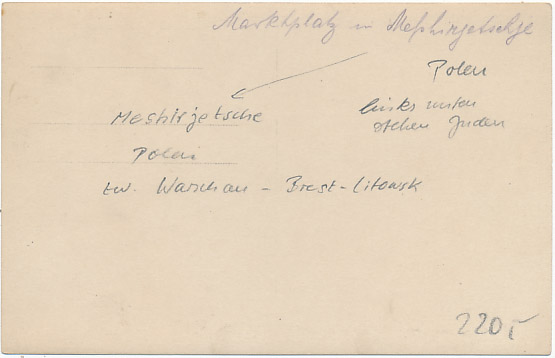 Marktplatz in Meshirjetschje
Polen
links unten
stehen Juden
Meshirjetsche
Polen
zw. Warschau - Brest-Litowsk
220,-